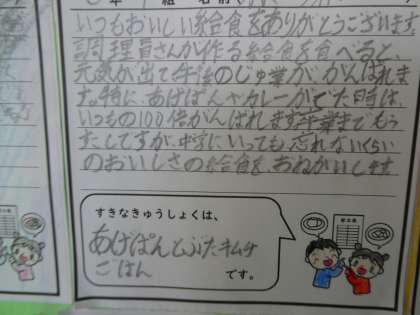 年 組 名前
いつもおいしい給食をありがとうございます。
調理員さんが作る給食を食べると、
元気が出て午後のじゅ業が、がんばれま
す。特に、あげぱんやカレーがでた時は、
いつもの100倍がんばれます。卒業までもう
すこしですが、中学にいっても忘れないくらい
のおいしさの給食を、おねがいします
すきなきゅうしょくは、
あげぱんとぶたキムチ
ごはん
です。
献立表